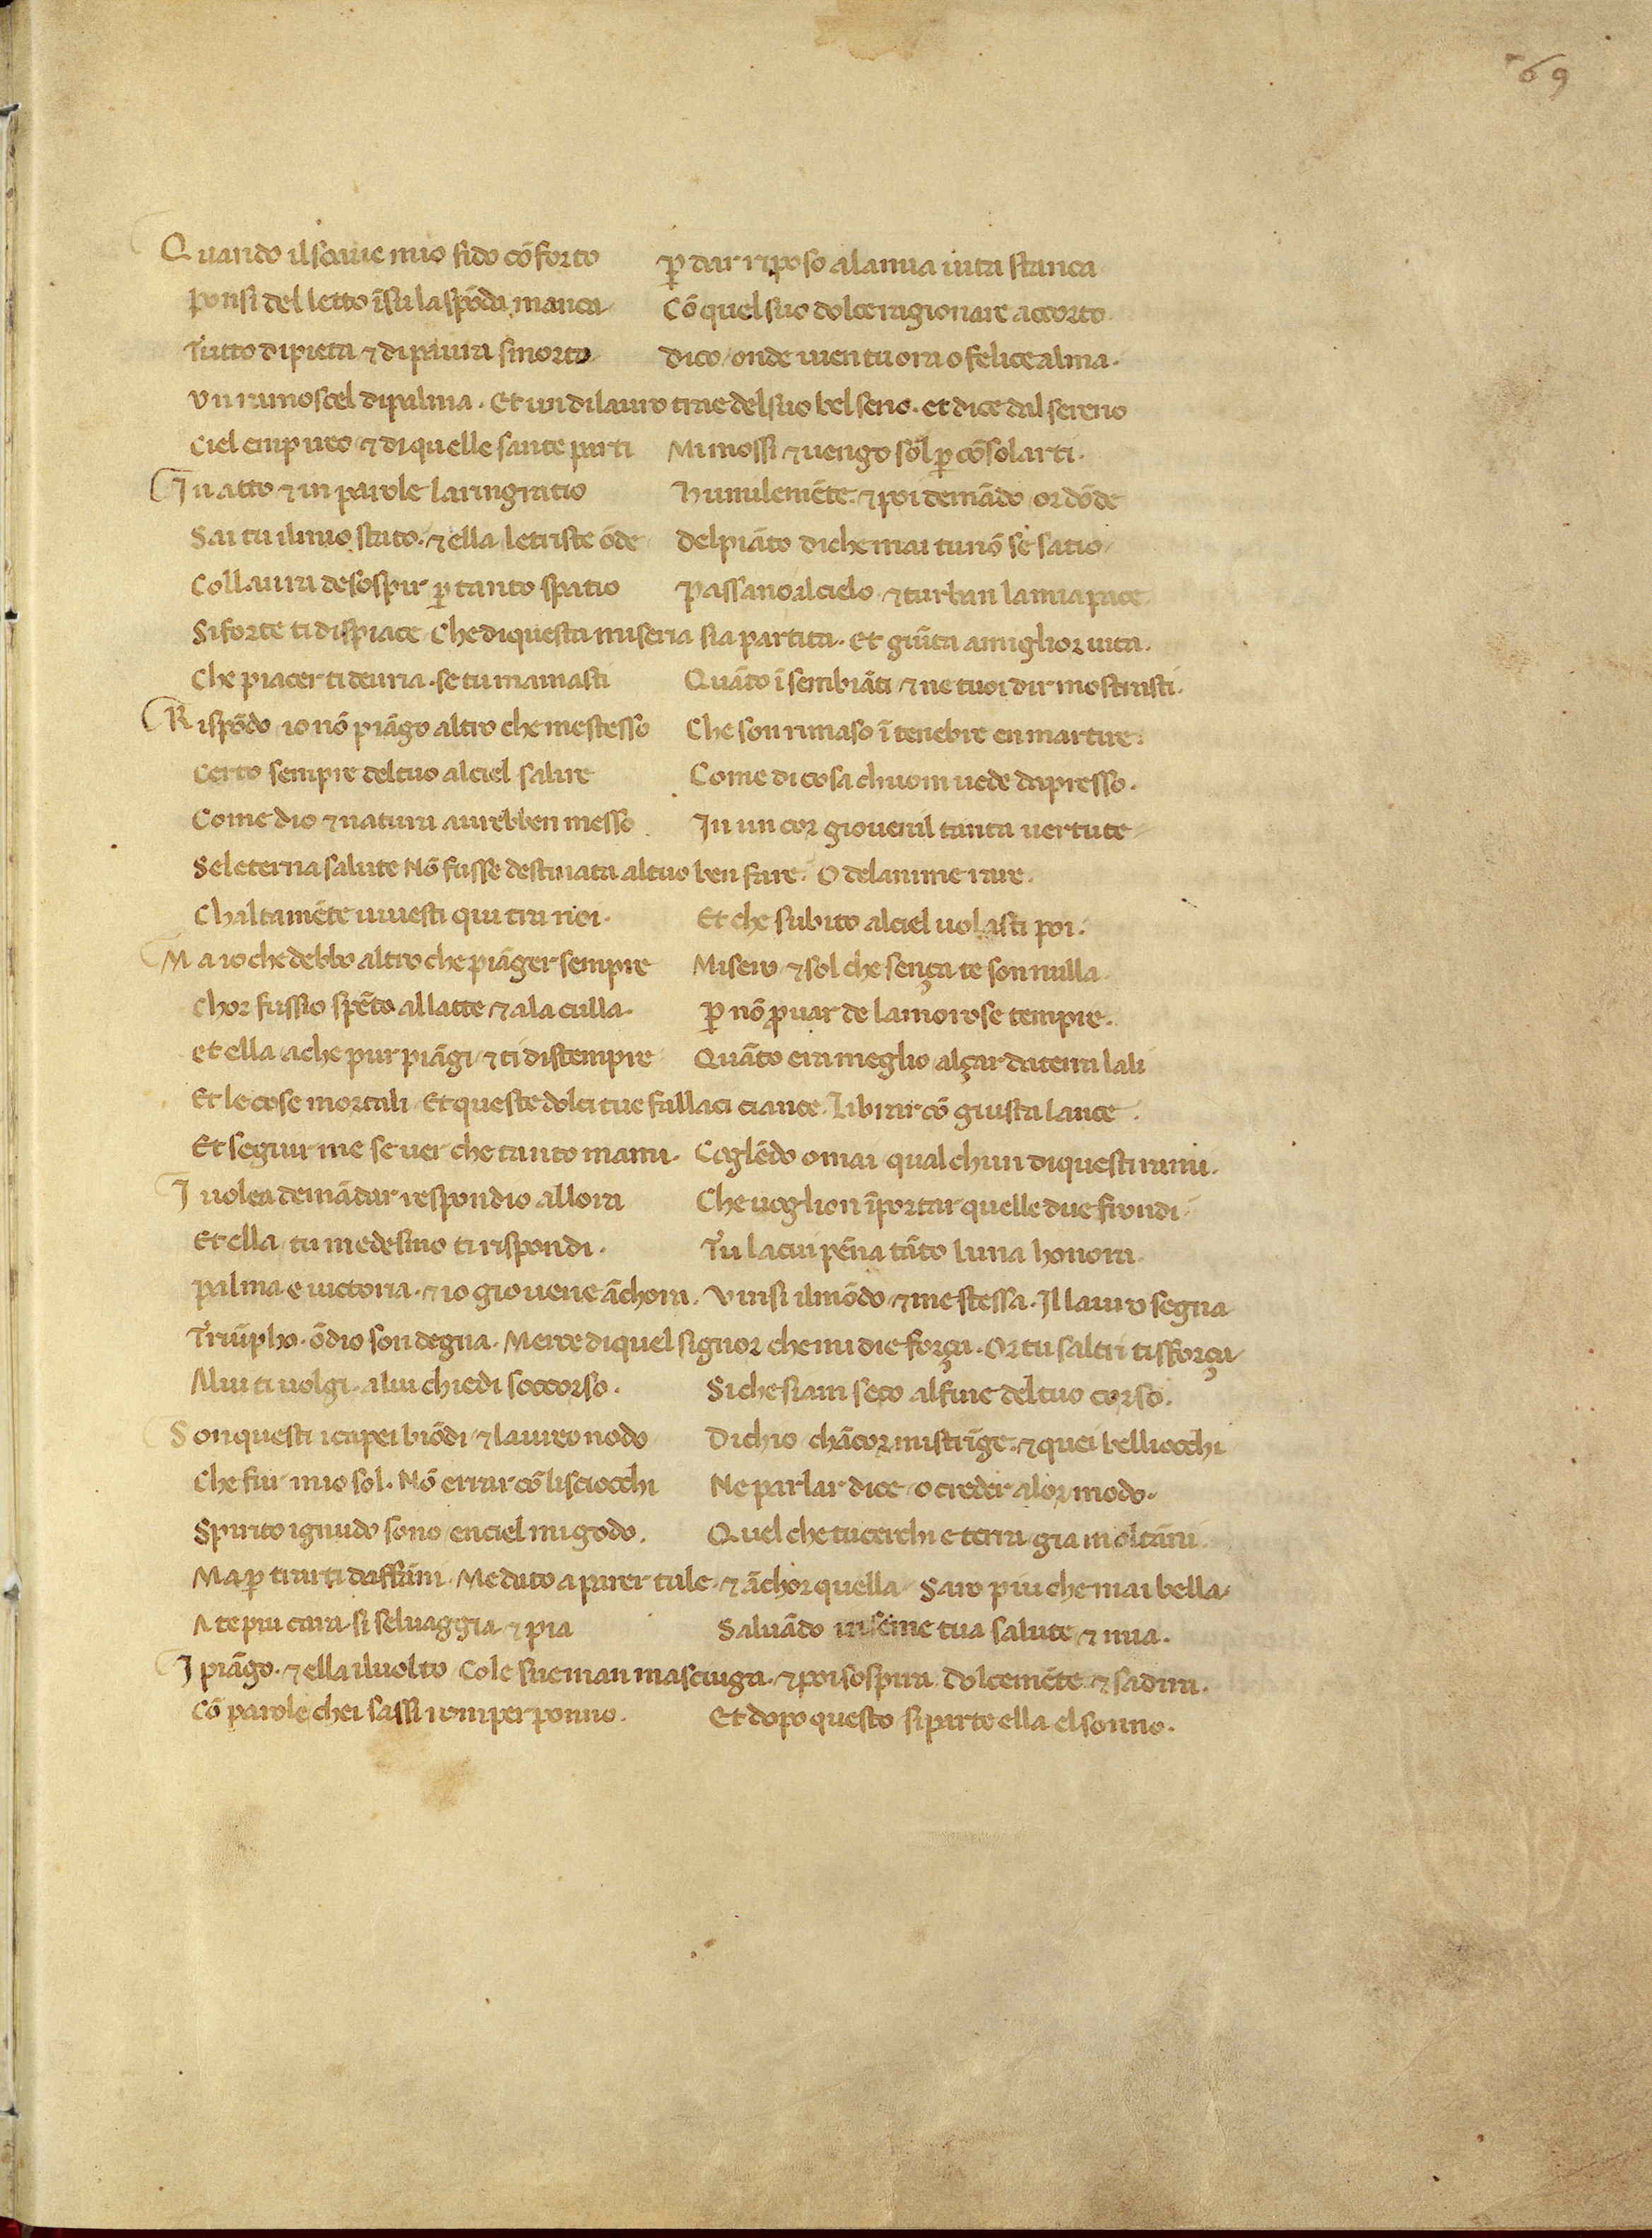 69
Quando il soaue mio fido cōforto ꝑ dar riposo ala mia uita stanca
Ponsi del letto ī su la spōda manca Cō quel suo dolce ragionare accorto.
Tutto di pieta ⁊ di paura smorto dico / onde uien tu ora o felice alma.
Vn ramoscel di palma. Et un di lauro trae del suo bel seno. et dice dal sereno
Ciel empireo ⁊ di quelle sante parti Mi mossi ⁊ uengo sōl ꝑ cōsolarti.
In atto ⁊ in parole la ringratio Humilemēte. ⁊ poi demādo or dōde
Sai tu il mio stato. ⁊ ella le triste ōde del piāto di che mai tu nō se satio
Coll aura de sospir ꝑ tanto spatio Passano al cielo ⁊ turban la mia pace
Si forte ti dispiace Che di questa miseria sia partita. et giūta a miglior uita.
Che piacer ti deuria. se tu mamasti Quāto ī sembiāti ⁊ ne tuoi dir mostrasti.
Rispōdo / io nō piāgo altro che me stesso Che son rimaso ī tenebre en martire.
Certo sempre del tuo al ciel salire Come di cosa chuom uede dapresso.
Come dio ⁊ natura aurebben messo In un cor giouenil tanta uertute
Se leterna salute Nō fusse destinata al tuo ben fare. O de lanime rare.
Chaltamēte uiuesti qui tra noi. Et che subito al ciel uolasti poi.
Ma io che debbo altro che piāger sempre Misero ⁊ sol che sença te son nulla.
Chor fussio spēto al latte ⁊ a la culla. ꝑ nō ꝓuar de lamorose tempre.
et ella / a che pur piāgi / ⁊ ti distempre Quāto era meglio alçar da terra lali
Et le cose mortali / Et queste dolci tue fallaci ciance. Librar cō giusta lance.
Et seguir me se uer che tanto mami. Coglēdo omai qual chun di questi rami.
I uolea demādar respondio allora Che uoglion īportar quelle due frondi
Et ella / tu medesmo ti rispondi. Tu la cui pēna tāto luna honora.
Palma e uictoria. ⁊ io giouene āchora. Vinsi il mōdo ⁊ me stessa. Il lauro segna
Triūpho. ōdio son degna. Merce di quel signor che mi die força. Or tu saltri ti sforça
A lui ti uolgi. a lui chiedi soccorso. Si che siam seco al fine del tuo corso.
Son questi i capei biōdi ⁊ laureo nodo Dichio chācor mi strīge. ⁊ quei belli occhi
Che fur mio sol. Nō errar cō li sciocchi Ne parlar dice / o creder a lor modo.
Spirito ignudo sono / en ciel mi godo. Quel che tu cerchi e terra / gia moltāni.
Ma ꝑ trarti daffāni. Me dato a parer tale. ⁊ āchor quella Saro piu che mai bella
A te piu cara si seluaggia ⁊ pia Saluādo inseme tua salute ⁊ mia.
I piāgo. ⁊ ella il uolto Cole sue man masciuga. ⁊ poi sospira Dolcemēte. ⁊ sadira.
Cō parole chei sassi romper ponno. Et dopo questo si parte ella el sonno.